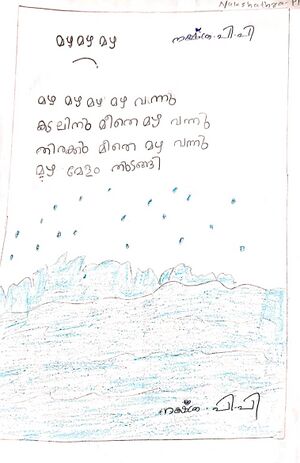 Nakshathra P
മഴ മഴ മഴ
നക്ഷത്ര . പി . പി
മഴ മഴ മഴ മഴ വന്നു
കടലിനു മീതെ മഴ വന്നു
തിരകൾ മീതെ മഴ വന്നു
മഴ മേളം തുടങ്ങി
നക്ഷത്ര . പി . പി